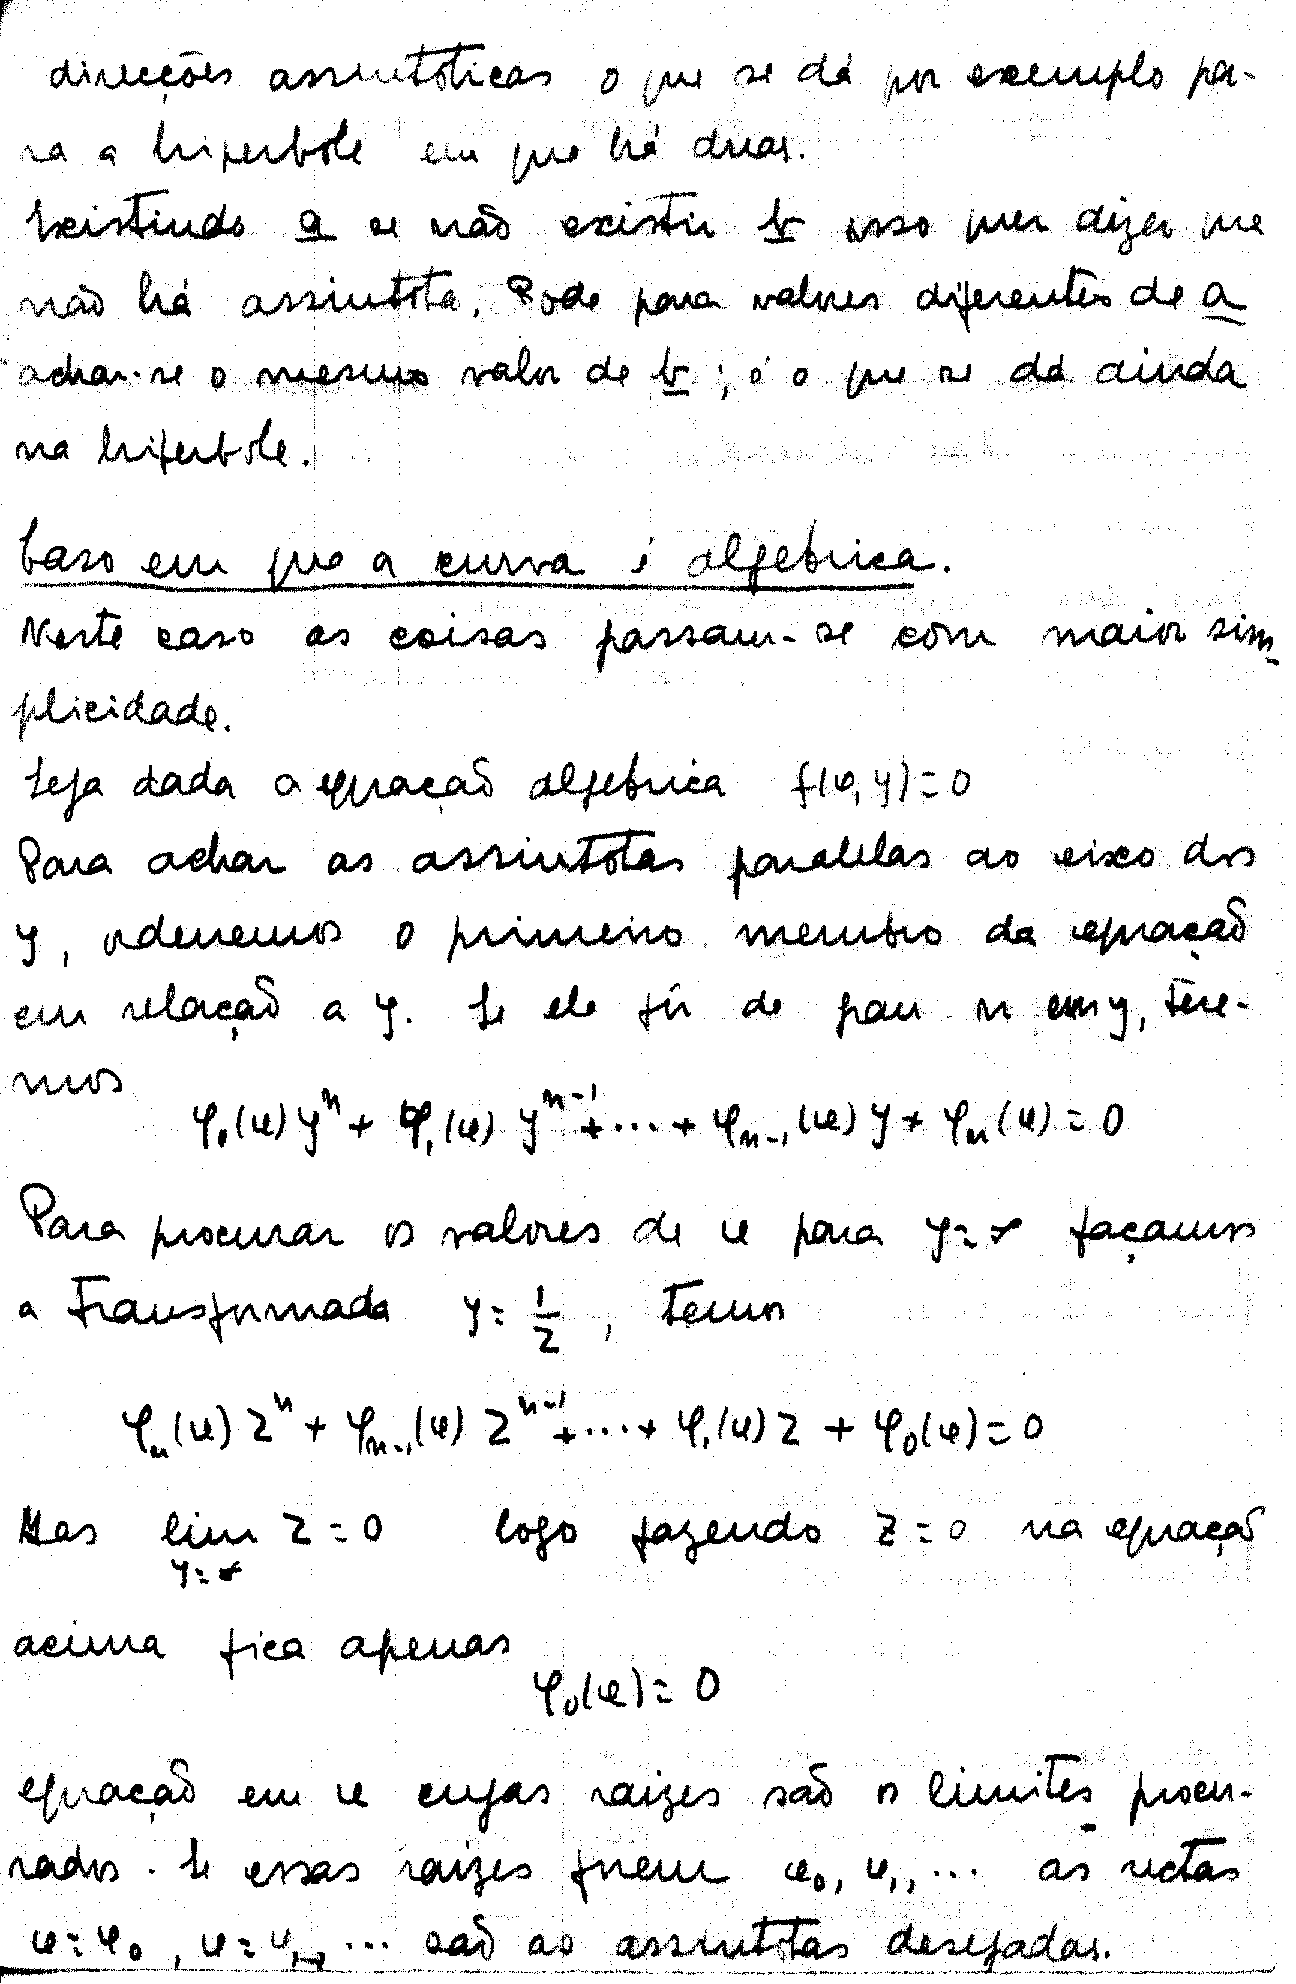 direcções assintóticas o que se dá por exemplo pa-
ra a hiperbole em que há duas.
Existindo a se não existir b isso quer dizer que
não há assintota. Pode para valores diferentes de a
achar-se o mesmo valor de b; é o que se dá ainda
na hiperbole.
Caso em que a curva é algebrica.
Neste caso as coisas passam-se com maior sim-
plicidade.
Seja dada a equação algebrica f(x,y)=0
Para achar as assintotas paralelas ao eixo dos
y, ordenemos o primeiro membro da equação
em relação a y. Se ele fôr de grau n em y, tere-
mos
φ₀(x)yⁿ + φ₁(x)yⁿ⁻¹+...+ φₙ₋₁(x)y + φₙ(x)=0
Para procurar os valores de x para y=∞ façamos
a transformada y=1/z, temos
φₙ(x)zⁿ + φₙ₋₁(x)zⁿ⁻¹+...+ φ₁(x)z + φ₀(x)=0
Mas lim z=0 logo fazendo z=0 na equação
y=∞
acima fica apenas
φ₀(x)=0
equação em x cujas raizes são os limites procu-
rados. Se essas raizes forem x₀, x₁, ... as rectas
x=x₀, x=x₁, ... são as assintotas desejadas.